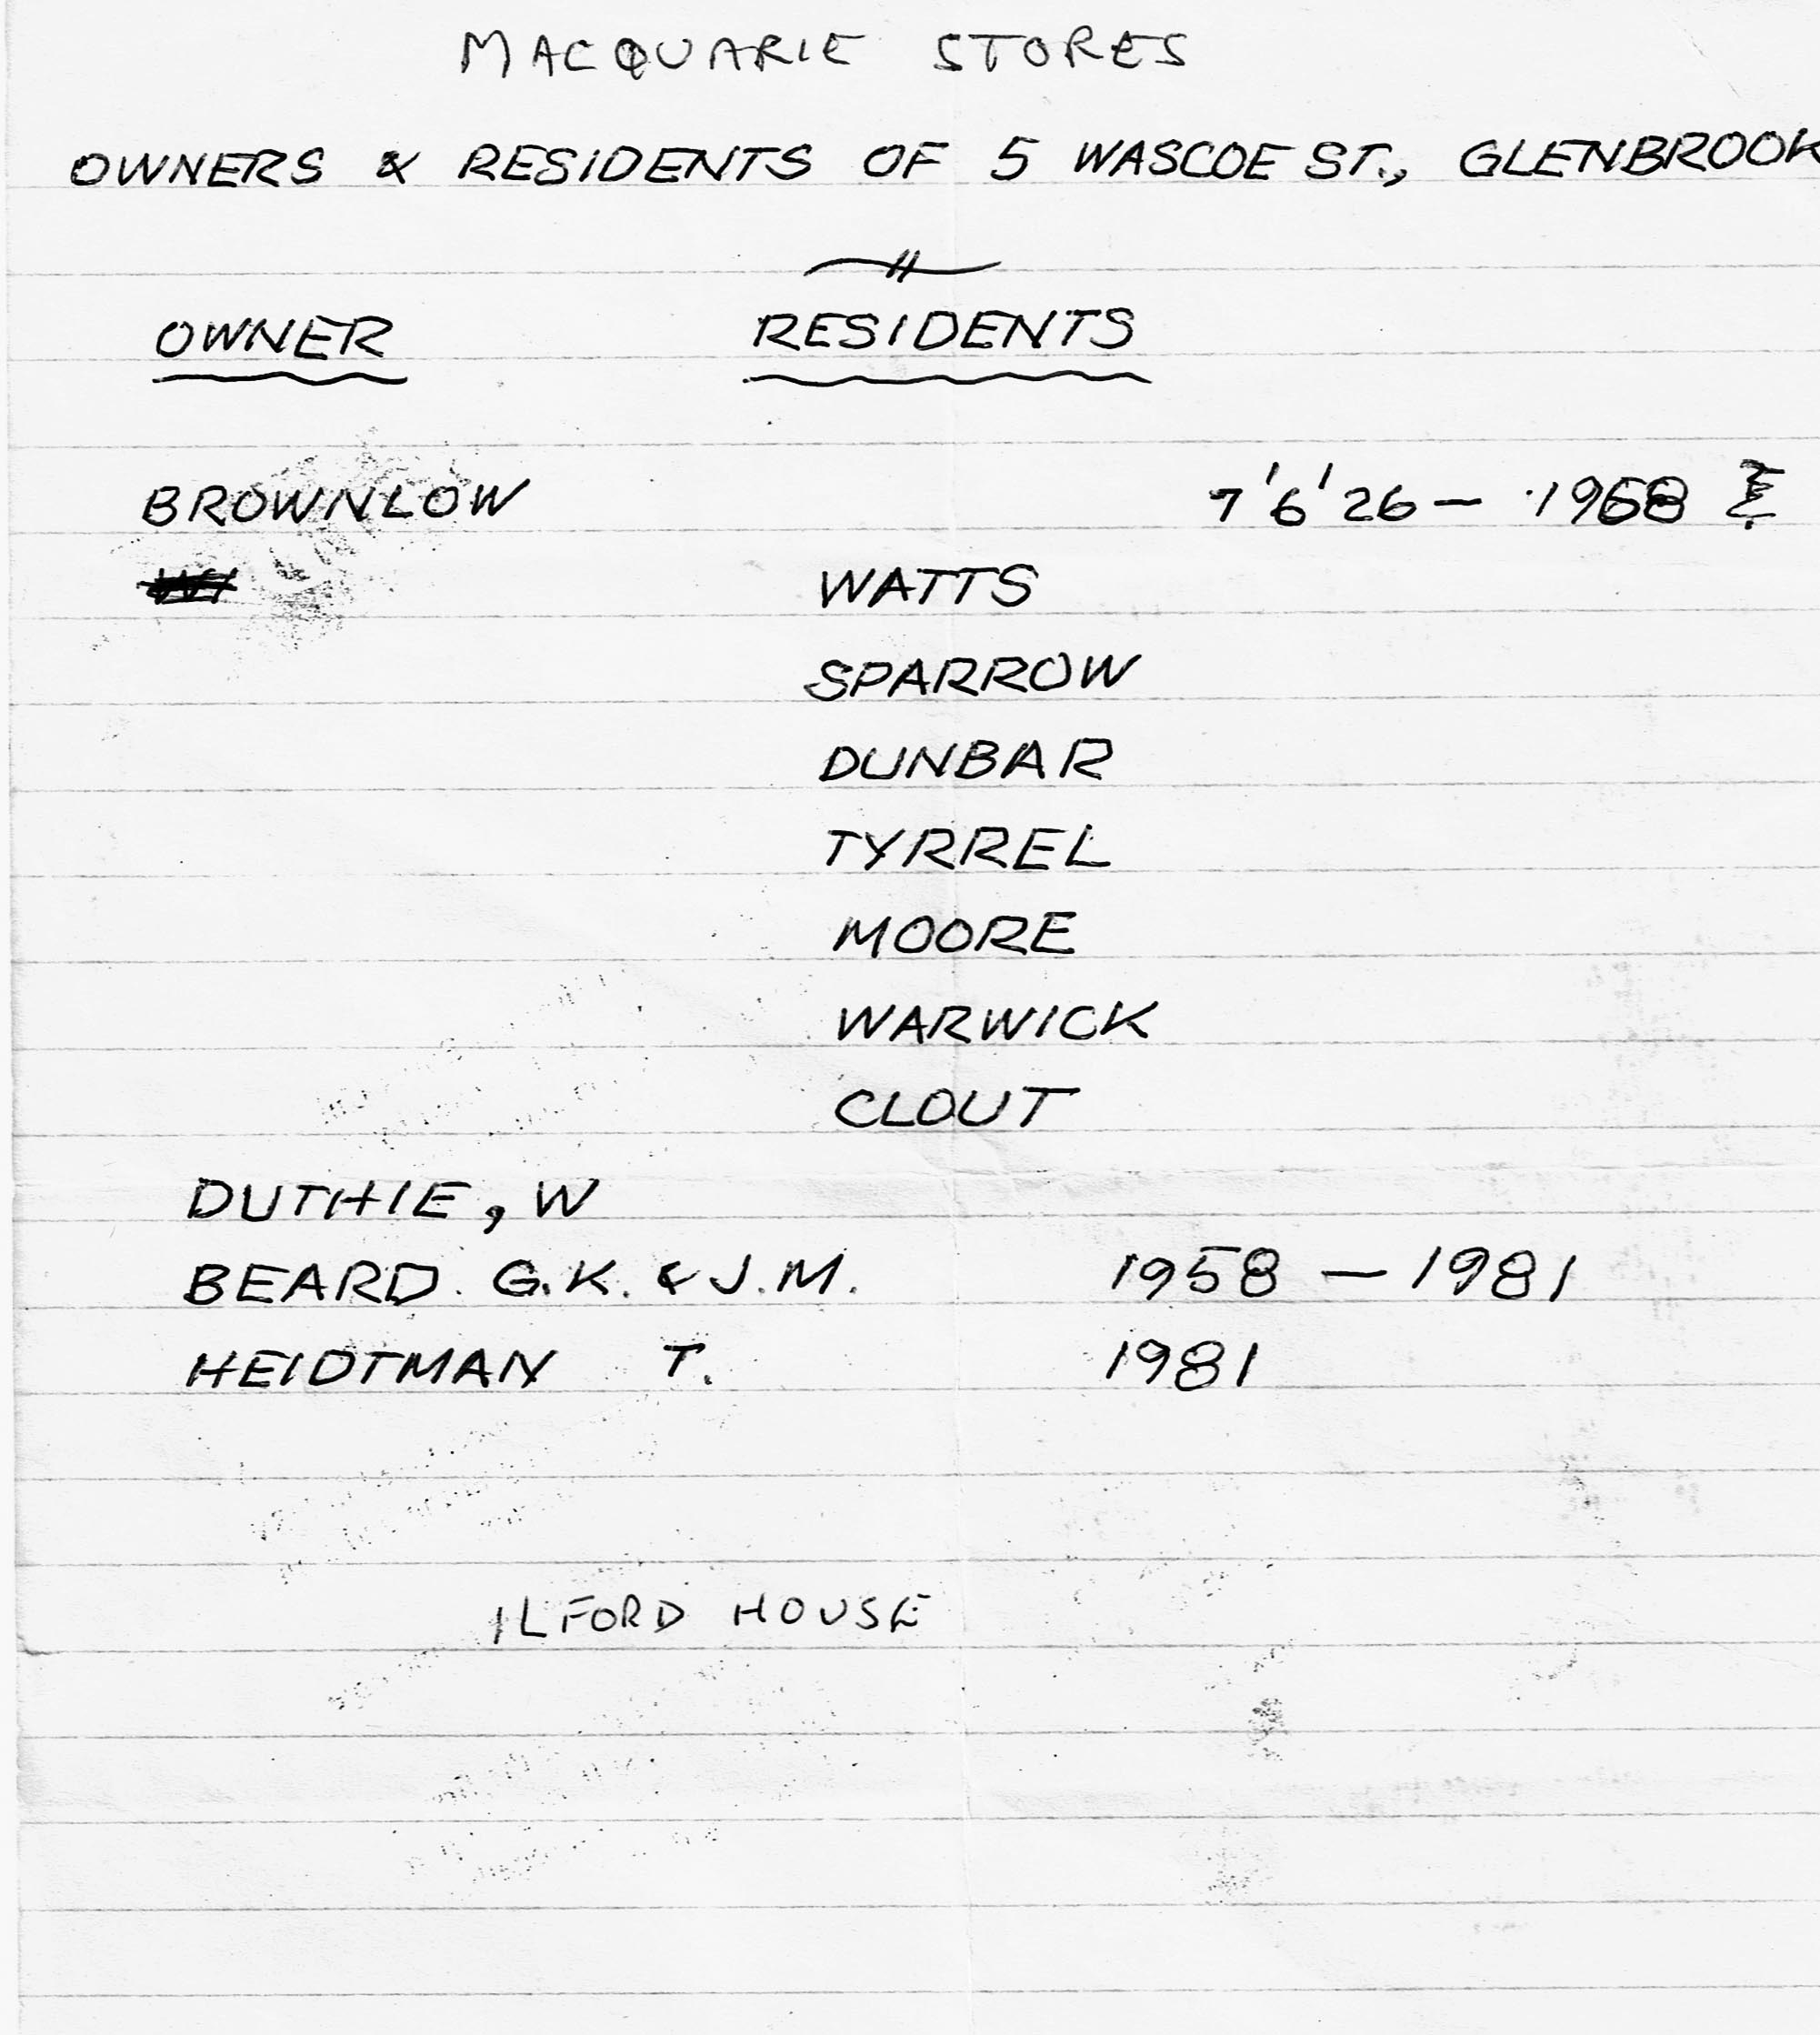 MACQUARIE STORES
OWNERS & RESIDENTS OF 5 WASCOE ST., GLENBROOK
OWNER RESIDENTS
BROWNLOW 7'6'26 - 1968
WATTS
SPARROW
DUNBAR
TYRREL
MOORE
WARWICK
CLOUT
DUTHIE, W
BEARD. G.K. & J.M. 1958 - 1981
HEIDTMAN T. 1981
ILFORD HOUSE